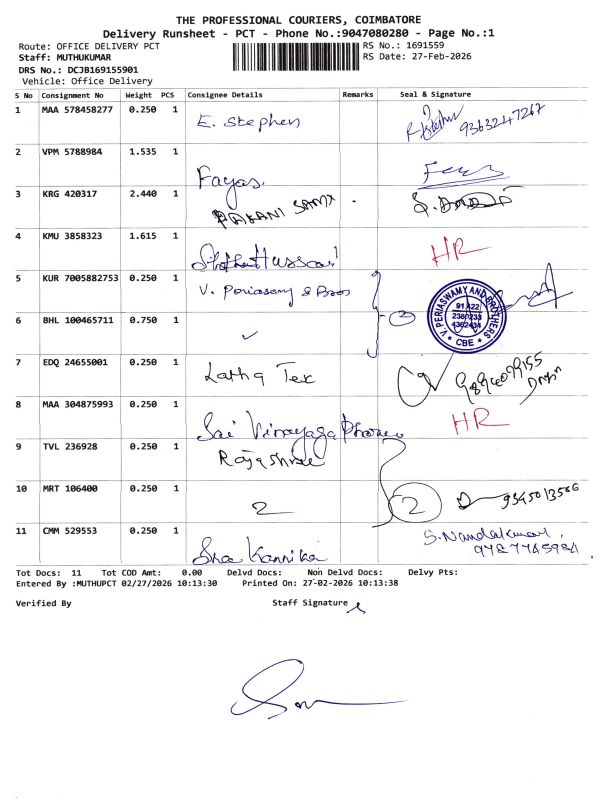 THE PROFESSIONAL COURIERS, COIMBATORE
Delivery Runsheet - PCT - Phone No.:9047080280 - Page No.:1
Route: OFFICE DELIVERY PCT RS No.: 1691559
Staff: MUTHUKUMAR RS Date: 27-Feb-2026
DRS No.: DCJB169155901
Vehicle: Office Delivery
S No Consignment No Weight PCS Consignee Details Remarks Seal & Signature
1 MAA 578458277 0.250 1 E. Stephen 9363247267
2 VPM 5788984 1.535 1 Fayas.
3 KRG 420317 2.440 1 PALANI SAMY
4 KMU 3858323 1.615 1 HR
5 KUR 7005882753 0.250 1 V. Periasamy & Bros
6 BHL 100465711 0.750 1 ✓ 2
V. PERIASWAMY AND BROTHERS
CBE
7 EDQ 24655001 0.250 1 Latha Tex
8 MAA 304875993 0.250 1 Sri Vinayaga HR
9 TVL 236928 0.250 1 Rajashree
10 MRT 106400 0.250 1 2 2 9345013566
11 CMM 529553 0.250 1 Sha Kannika S. Nandakumar, 9787745984
Tot Docs: 11 Tot COD Amt: 0.00 Delvd Docs: Non Delvd Docs: Delvy Pts:
Entered By :MUTHUPCT 02/27/2026 10:13:30 Printed On: 27-02-2026 10:13:38
Verified By Staff Signature